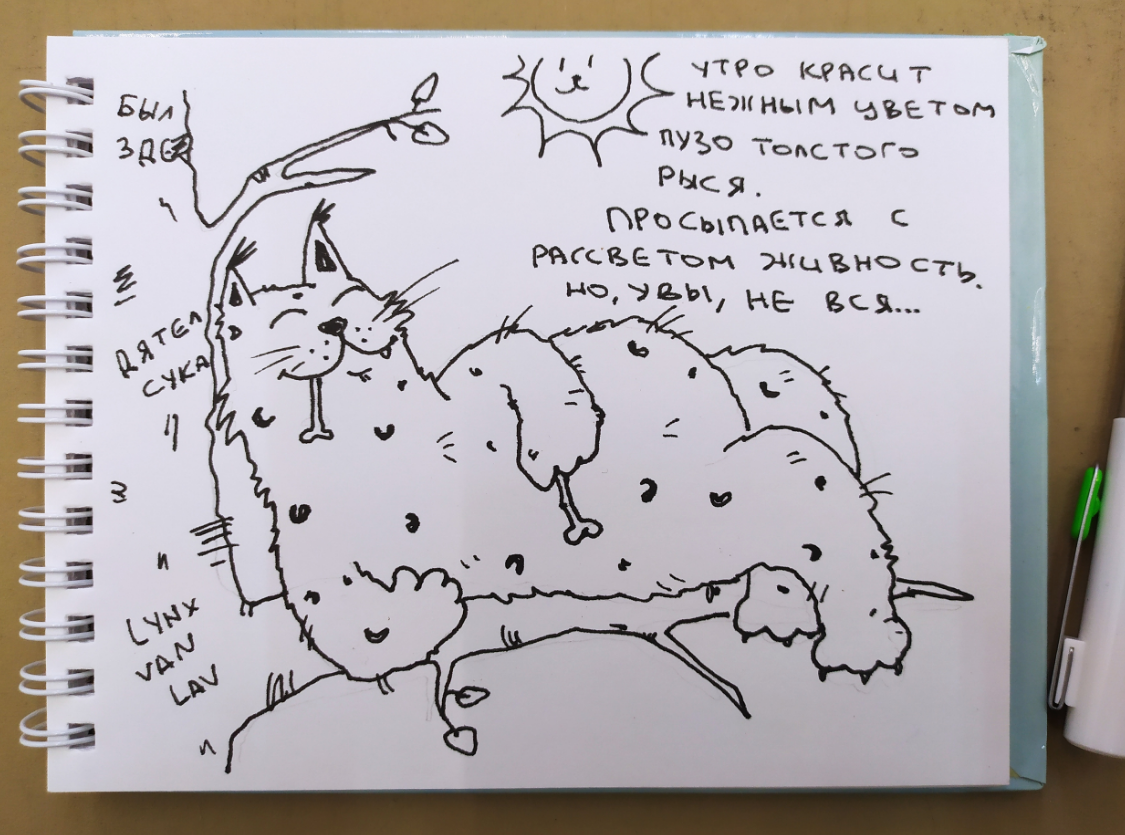 УТРО КРАСИТ
НЕЖНЫМ ЦВЕТОМ
ПУЗО ТОЛСТОГО
РЫСЯ.
ПРОСЫПАЕТСЯ С
РАССВЕТОМ ЖИВНОСТЬ.
НО, УВЫ, НЕ ВСЯ...
БЫЛ
ЗДЕ
ДЯТЕЛ
СУКА
LYNX
VAN
LAV